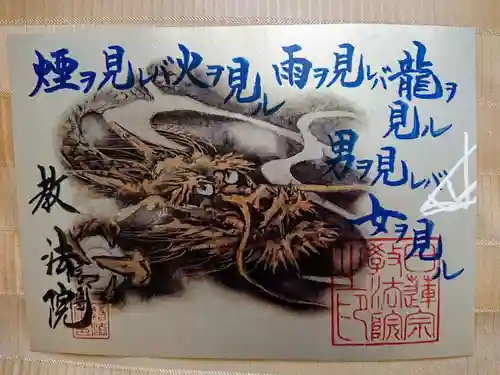 雨ヲ見レバ龍ヲ見ル
男ヲ見レバ女ヲ見ル
煙ヲ見レバ火ヲ見ル
教法院
日蓮宗
教法院
之印